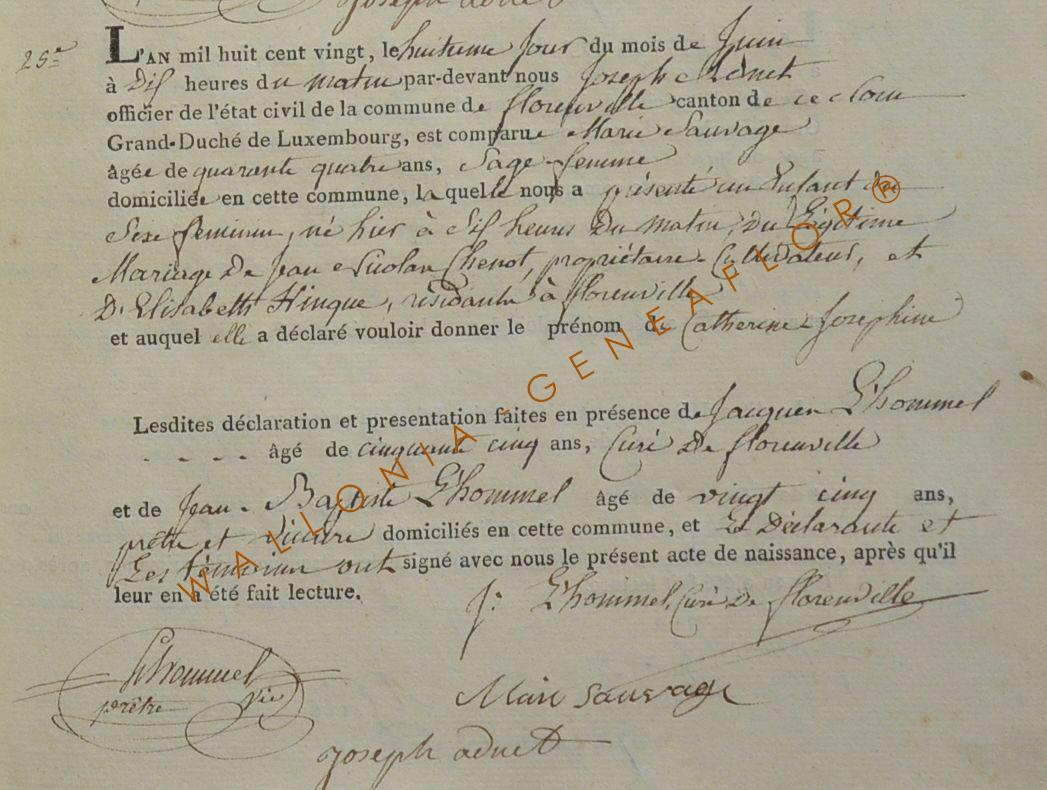 joseph adnet
25e
L'AN mil huit cent vingt, le huitieme jour du mois de Juin
à Dix heures du matin par-devant nous Joseph Adnet
officier de l'état civil de la commune de florenville canton de ce nom
Grand-Duché de Luxembourg, est comparue Marie Sauvage
âgée de quarante quatre ans, Sage-femme
domiciliée en cette commune, la quelle nous a présenté un Enfant du
Sexe feminin, né hier à Six heures Du matin, Du Légitime
Mariage De Jean Nicolas Chenot, propriétaire Cultivateur, et
D'Elisabeth Hinque, résidants à florenville
et auquel elle a déclaré vouloir donner le prénom de Catherine Josephine
Lesdites déclaration et presentation faites en présence de Jacques L'hommel
âgé de cinquante cinq ans, Curé De florenville
et de Jean-Baptiste L'hommel âgé de vingt cinq ans,
prêtre et vicaire domiciliés en cette commune, et La Déclarante et
Les témoins ont signé avec nous le présent acte de naissance, après qu'il
leur en a été fait lecture.
J: L'hommel, Curé De florenville
L'hommel
prêtre vic
Mari Sauvage
joseph adnet
WALLONIA-GENEAFLOR®